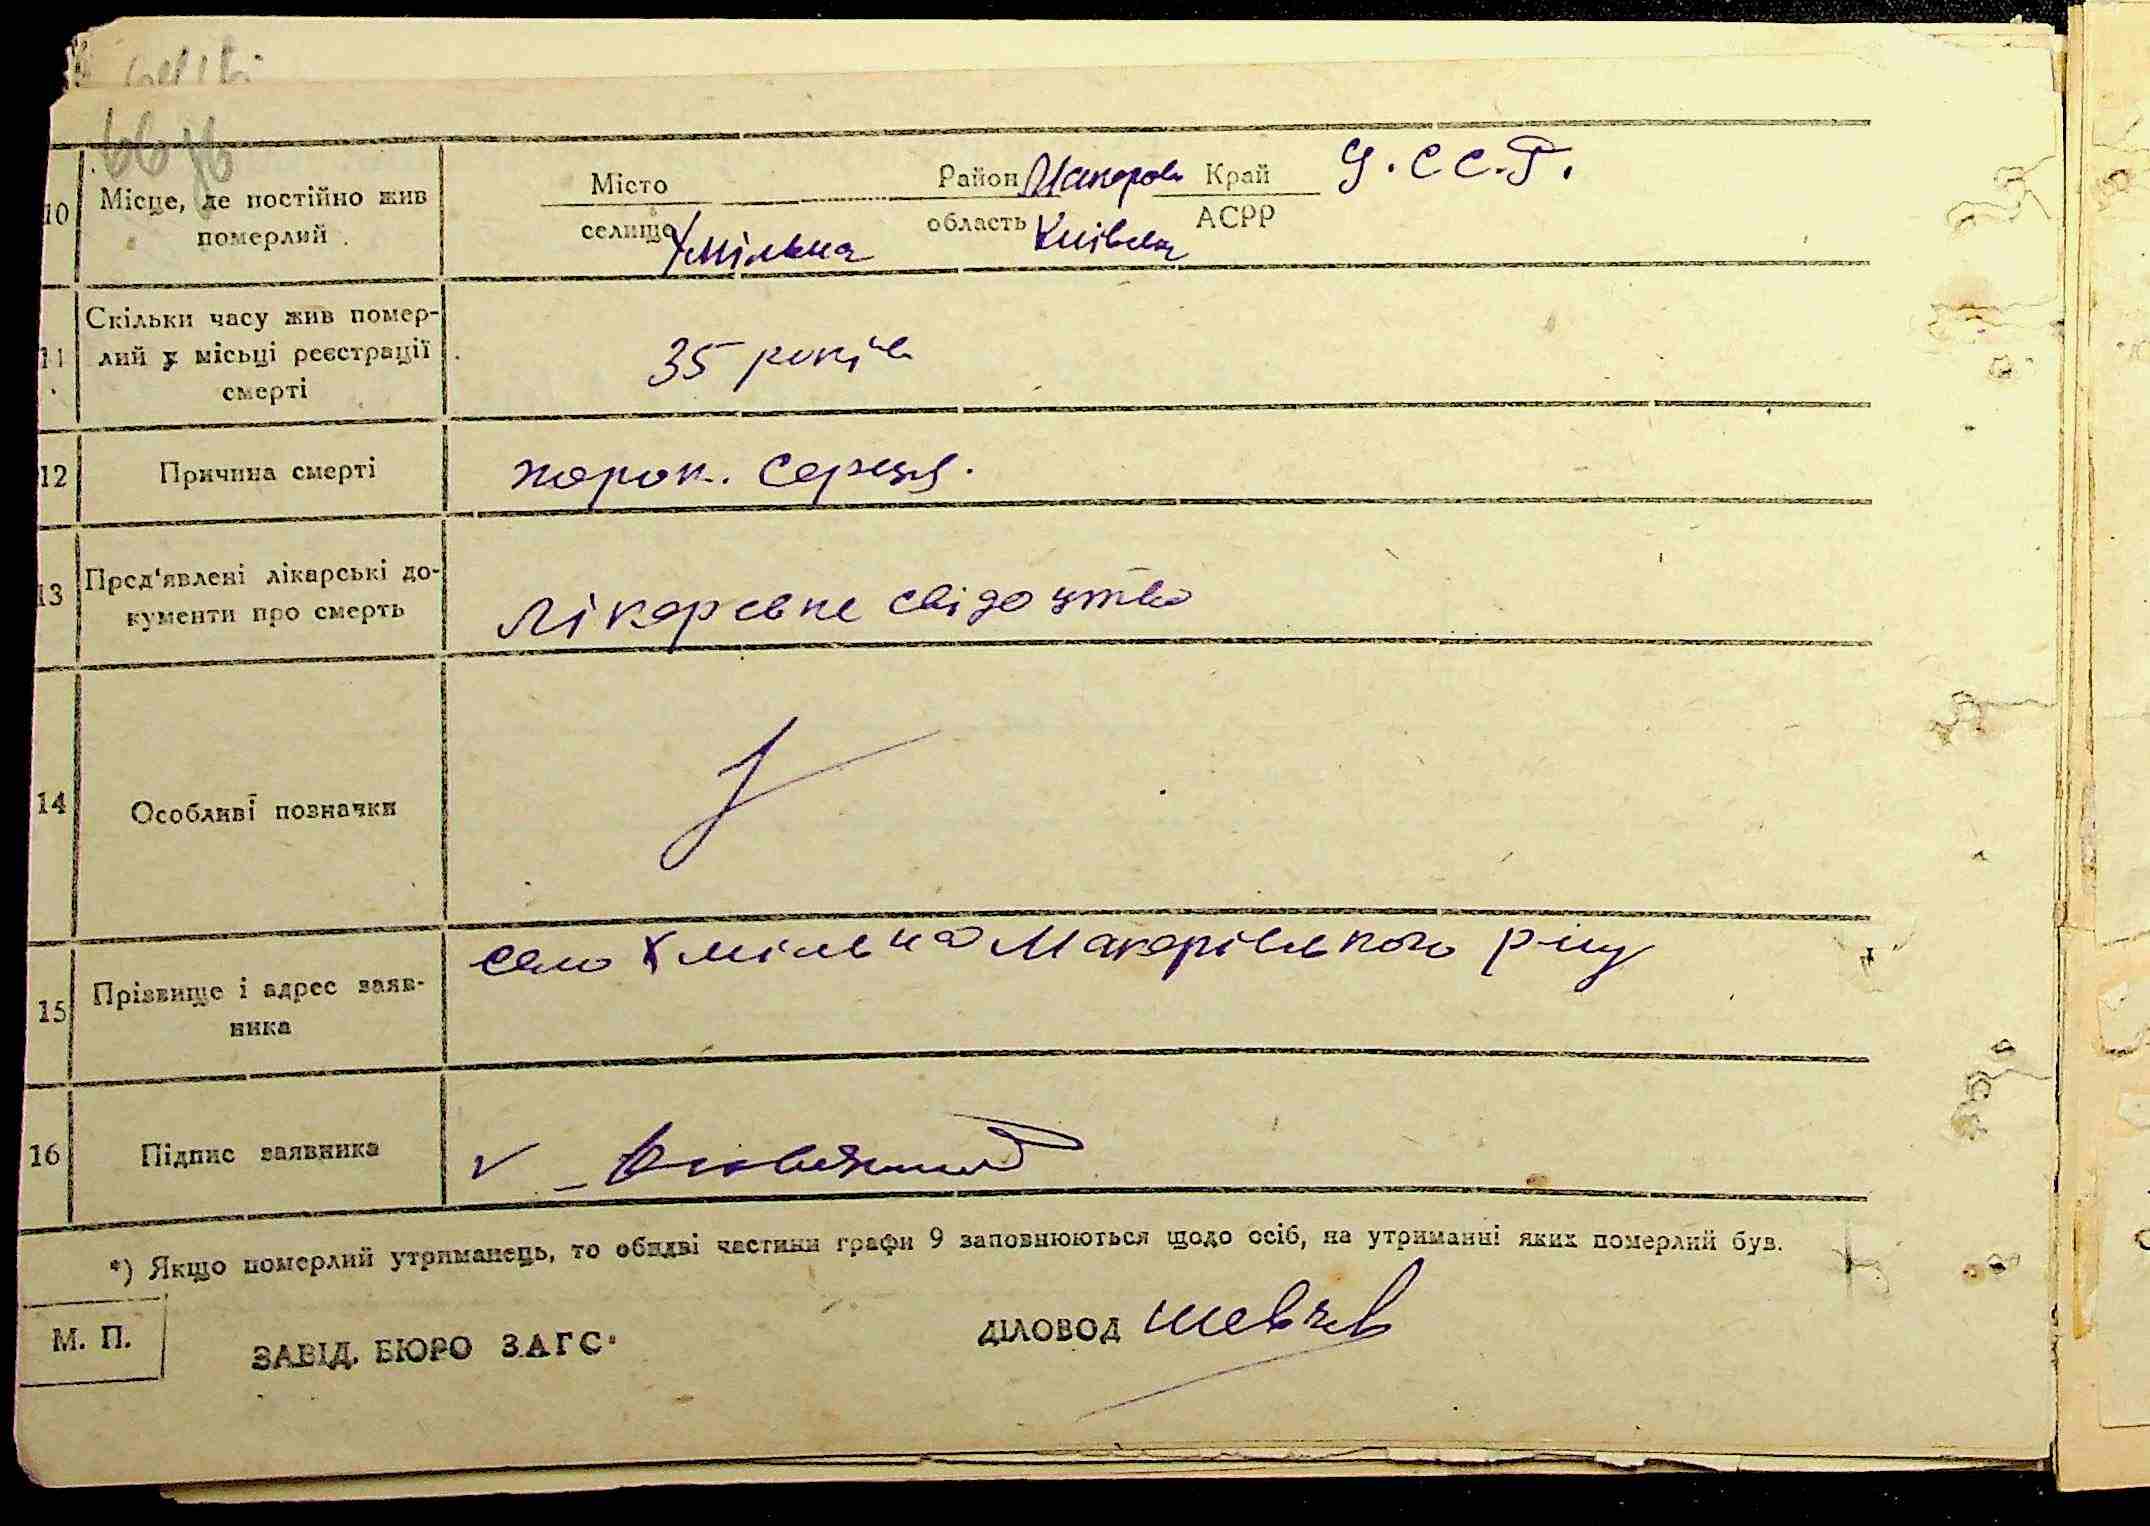 66 зв
Місто Район Макарів Край У.С.С.Р.
10 Місце, де постійно жив
померлий
селище Хмільна область Київська АСРР
Скільки часу жив помер-
11 лий у місьці реєстрації 35 років
смерті
12 Причина смерті порок. серця.
13 Пред'явлені лікарські до-
кументи про смерть Лікарське свідоцтво
14 Особливі позначки
село Хмільна Макарівського р-ну
15 Прізвище і адрес заяв-
ника
16 Підпис заявника
*) Якщо померлий утриманець, то обидві частини графи 9 заповнюються щодо осіб, на утриманні яких померлий був.
М. П. ЗАВІД. БЮРО ЗАГС ДІЛОВОД